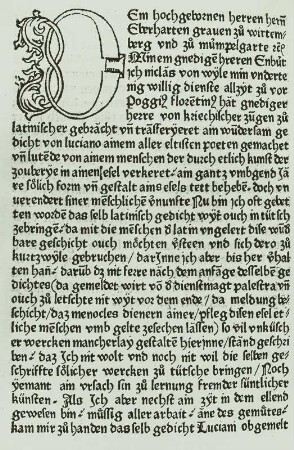 Dem hochgebornen herren herrn
Eberharten grauen zů wirttem-
berg vnd zů můmpelgarte rc̄
Minem gnedigen hreren Enbůt
ich niclas von wyle min vnderte
nig willig dienste allzÿt zů vor
Poggiꝰ florentinꝰ hāt gnediger
herre von kriechischer zügen zů
latinischer gebrācht vn̄ trāsferyeret ain wůdersam ge
dicht von luciano ainem aller eltisten poeten gemachet
vn̄ lutēde von ainem menschen der durch etlich kunst der
zouberÿe in ainen esel verkeret/ am gantz vmbgend
jāre sölich form vn̄ gestalt ains esels tett behebē. doch vn
uerendert siner mēschlichē v̄nunfte Nu bin jch oft gebet
ten wordē das selb latinisch gedicht wÿt ouch in tütsch
zebringē/ da mit die mēschen ð latin vngelert dise wūd
bare geschicht ouch möchten v̄steen vnd sich dero zů
kurtzwÿle gebruchen/ dar Inne jch aber bis her v̄hal
ten han/ darūb dz mit ferre nāch dem anfāge desselbē ge
dichtes (da gemeldet wirt vō ð dienstmagt palestra vn̄
ouch zů letschte nit wÿt vor dem ende/ da meldung be
schicht/ daz menocles dienern ainer/ pfleg disen esel et-
liche mēschen vmb gelte zesechen lāssen) so vil vnküsch
er wercken mancherlaÿ gestalt hier jnne/ stānd geschri
ben. daz Jch nit wolt vnd noch nit wil die selben ge-
schriffte sölicher wercken zů tütsche bringen/ Noch
yemant ain vrsāch sin zů lernung fremder süntlicher
künsten. Als jch aber nechst am zÿt in dem ellend
gewesen bin. müssig aller arbait. āne des gemütes.
kam mir zů handen das selb gedicht Luciani obgemelt